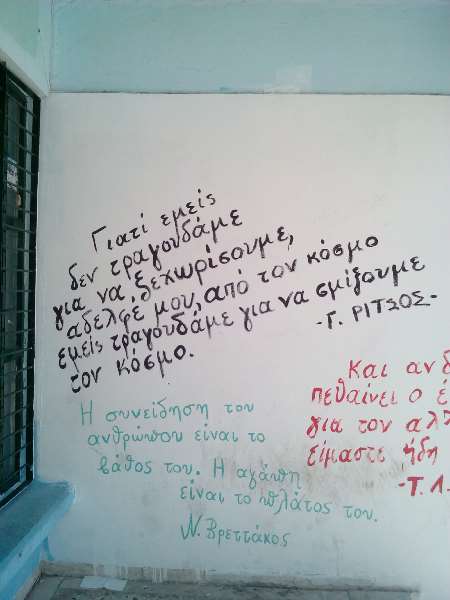 Γιατί εμείς
δεν τραγουδάμε
για να ξεχωρίσουμε,
αδελφέ μου, από τον κόσμο
εμείς τραγουδάμε για να σμίξουμε
τον κόσμο.
-Γ. ΡΙΤΣΟΣ-
Και αν δ
πεθαίνει ο έ
για τον αλλ
είμαστε ήδη
-Τ.Λ.
Η συνείδηση του
ανθρώπου είναι το
βάθος του. Η αγάπη
είναι το πλάτος του.
Ν. Βρεττάκος